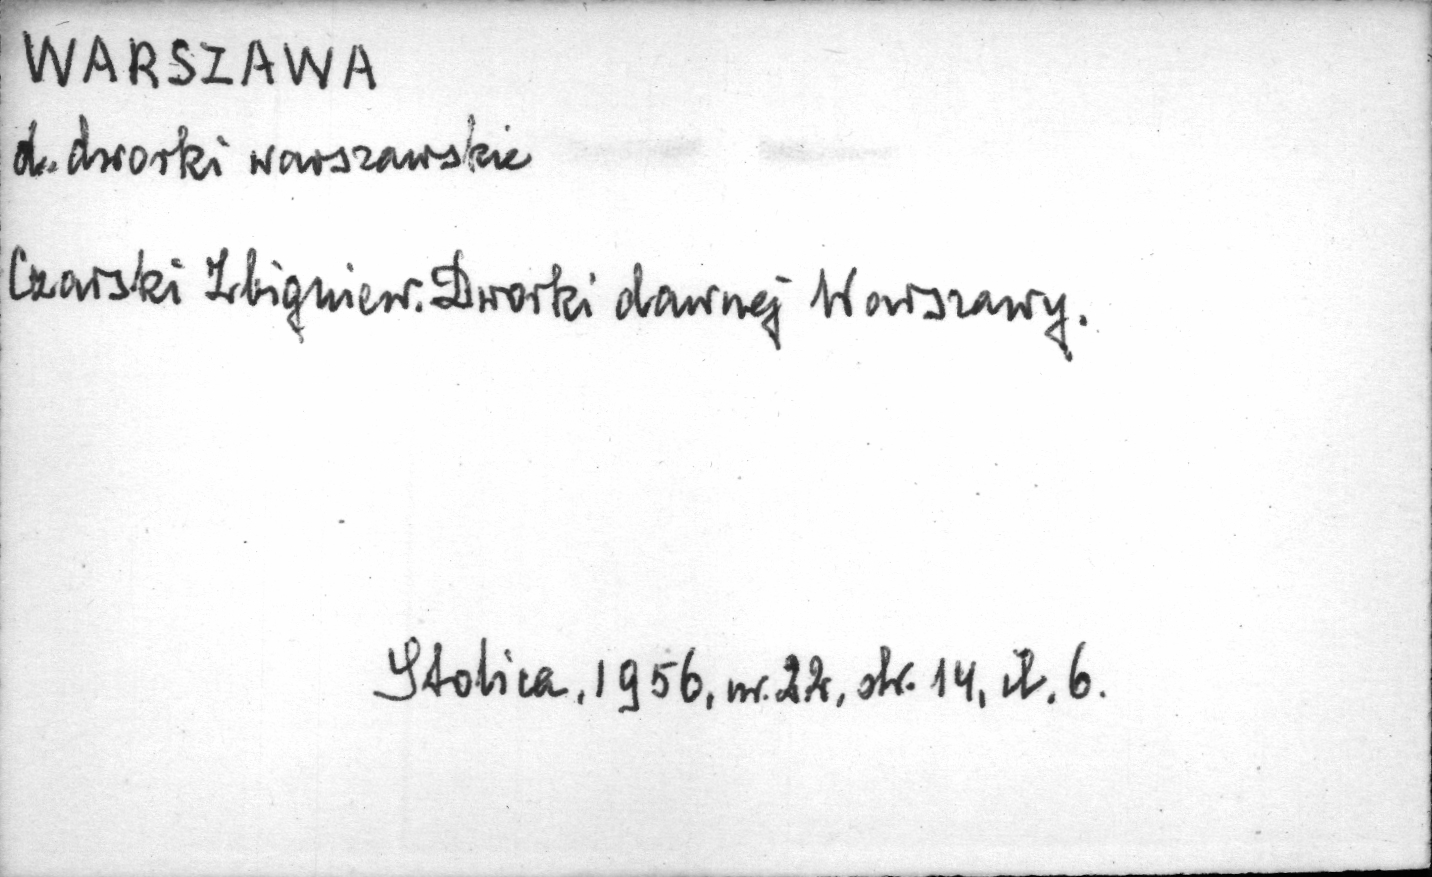 WARSZAWA
d. dworki warszawskie
Czarski Zbigniew. Dworki dawnej Warszawy.
Stolica, 1956, nr. 22, str. 14, il. 6.